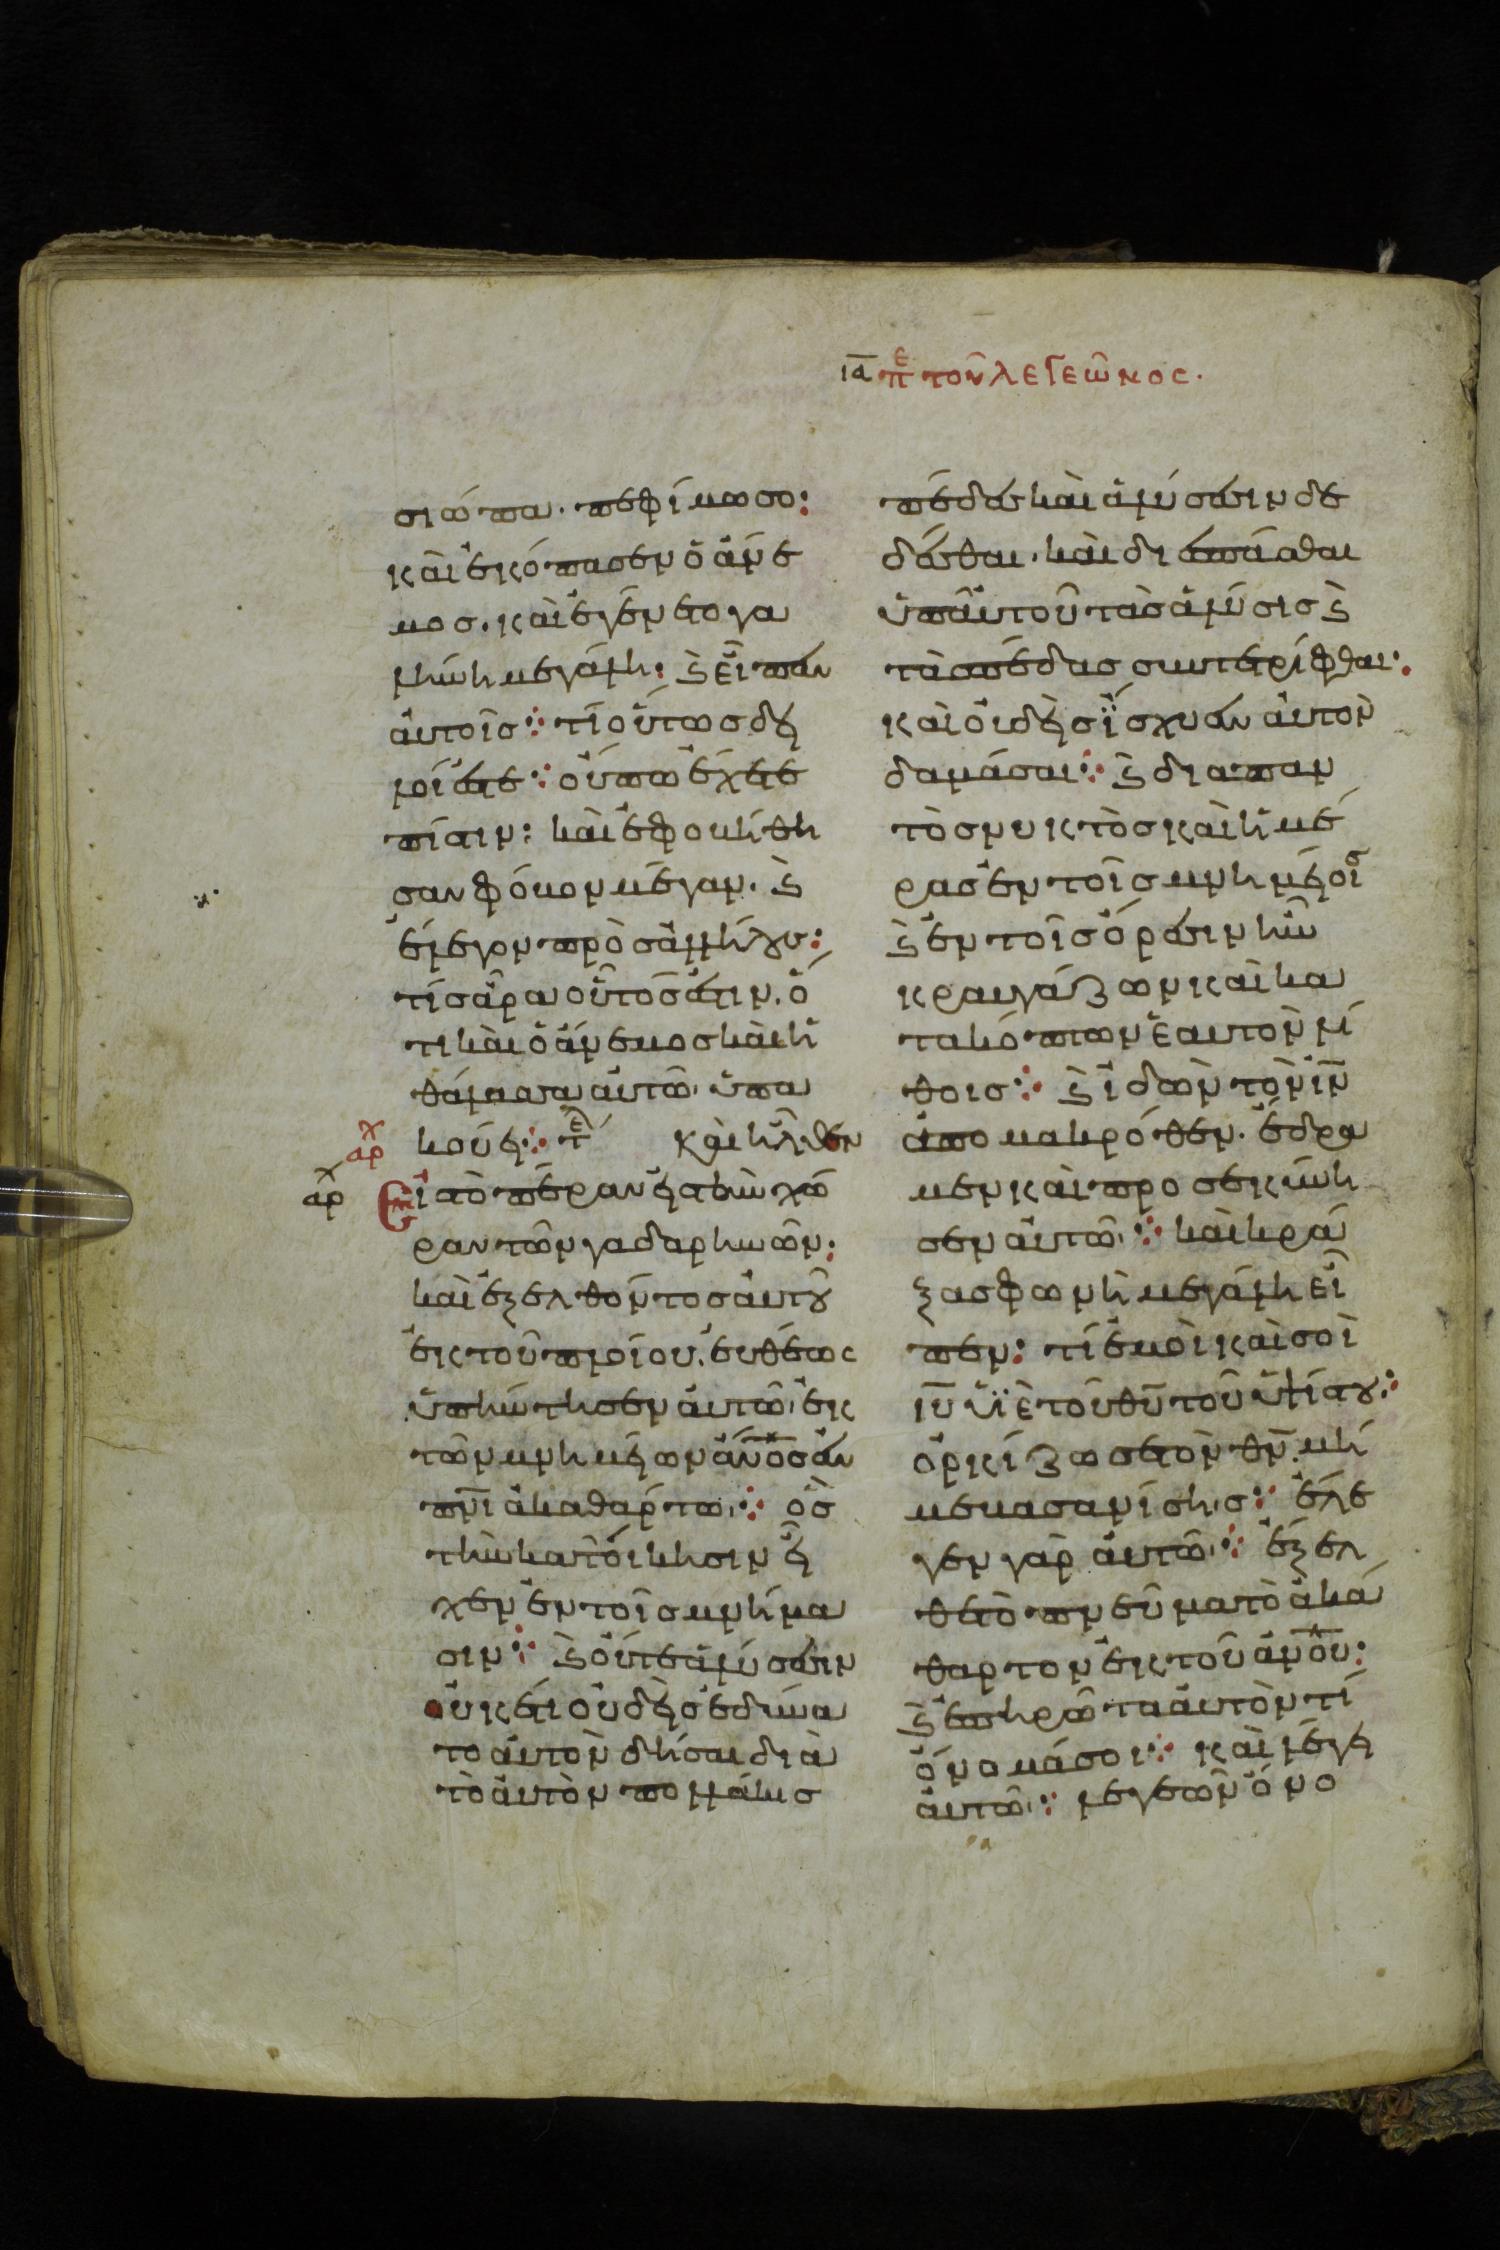 ια πε τοῦ λεγεῶνος.
σιώπα. πεφίμωσο:
καὶ ἐκόπασεν ὁ ἄνε
μος. καὶ ἐγένετο γα
λήνη μεγάλη: ϛ εἶπεν
αὐτοῖς ⁘ τί οὕτως δει
λοί ἐστε ⁘ οὔπω ἔχετε
πίστιν: καὶ ἐφοβήθη
σαν φόβον μέγαν. ϛ
ἔλεγον πρὸς ἀλλήλους:
τίς ἄρα οὗτος ἐστιν. ὅ
τι καὶ ὁ ἄνεμος καὶ ἡ
θάλασσα αὐτῶ ὑπα
κούει ⁘ τε Καὶ ἦλθεν
αρχ
αρχ
εἰς τὸ πέραν εἰς τὴν χώ
ραν τῶν γαδαρηνῶν:
καὶ ἐξελθόντος αὐτοῦ
ἐκ τοῦ πλοίου. εὐθέως
ὑπήντησεν αὐτῶ ἐκ
τῶν μνημείων ἄνος ἐν
πνι ἀκαθάρτω ⁘ ὃς
τὴν κατοίκησιν εἶ
χεν ἐν τοῖς μνήμα
σιν ⁘ ϛ οὔτε ἁλύσεσιν
οὐκέτι οὐδεὶς ἐδύνα
το αὐτὸν δῆσαι διὰ
τὸ αὐτὸν πολλάκις
πέδαις καὶ ἁλύσεσιν δε
δέσθαι. καὶ διεσπάσθαι
ὑπ αὐτοῦ τὰς ἁλύσεις ϛ
τὰς πέδας συντετρίφθαι:
καὶ οὐδεὶς ἴσχυεν αὐτὸν
δαμάσαι ⁘ ϛ διαπαν
τὸς νυκτὸς καὶ ἡμέ
ρας ἐν τοῖς μνημείοις
ϛ ἐν τοῖς ὄρεσιν ἦν
κραυγάζων καὶ κα
τακόπτων ἑαυτὸν λί
θοις ⁘ ϛ ἰδὼν τὸν ἰν
ἀπο μακρόθεν. ἔδρα
μεν καὶ προσεκύνη
σεν αὐτῶ ⁘ καὶ κρά
ξας φωνὴ μεγάλη εἶ
πεν: τί ἐμοὶ καὶ σοὶ
ιυ υἱὲ τοῦ θυ τοῦ ὑψίστου ⁘
ὁρκίζω σε τὸν θν. μή
με βασανίσης ⁘ ἔλε
γεν γὰρ αὐτῶ ⁘ ἔξελ
θε τὸ πνεῦμα τὸ ἀκά
θαρτον ἐκ τοῦ ἀνου:
ϛ ἐπηρώτα αὐτὸν τί
ὄνομά σοι ⁘ καὶ λέγει
αὐτῶ ⁘ λεγεὼν ὄνο